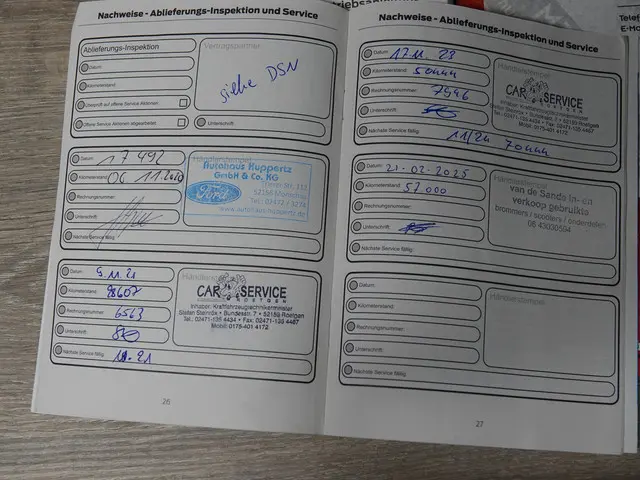 Nachweise - Ablieferungs-Inspektion und Service
Ablieferungs-Inspektion
Datum:
Kilometerstand:
Überprüft auf offene Service Aktionen:
Offene Service Aktionen abgearbeitet:
Vertragspartner
siehe DSN
Unterschrift:
Datum: 17 492
Kilometerstand: 06 11.2020
Rechnungsnummer:
Unterschrift:
Nächste Service fällig:
Händlerstempel
Autohaus Kuppertz
GmbH & Co. KG
Ford
www.autohauskuppertz.de
Datum: 9.11.21
Kilometerstand:
Rechnungsnummer: 6563
Unterschrift:
Nächste Service fällig:
Händlerstempel
CAR SERVICE
ROETGEN
Inhaber: Kraftfahrzeugtechnikermeister
Stefan Steinröx • Bundesstr. 7 • 52159 Roetgen
Tel.: 02471-135 4434 • Fax: 02471-135 4467
Mobil: 0175-401 4172
26
Nachweise - Ablieferungs-Inspektion und Service
Datum: 17.11.23
Kilometerstand:
Rechnungsnummer: 7946
Unterschrift:
Nächste Service fällig: 11/24
Händlerstempel
CAR SERVICE
ROETGEN
Inhaber: Kraftfahrzeugtechnikermeister
Stefan Steinröx • Bundesstr. 7 • 52159 Roetgen
Tel.: 02471-135 4434 • Fax: 02471-135 4467
Mobil: 0175-401 4172
Datum: 21-02-2025
Kilometerstand: 57.000
Rechnungsnummer:
Unterschrift:
Nächste Service fällig:
Händlerstempel
van de Sande in- en
verkoop gebruikte
brommers / scooters / onderdelen
06 43030594
Datum:
Kilometerstand:
Rechnungsnummer:
Unterschrift:
Nächste Service fällig:
Händlerstempel
27